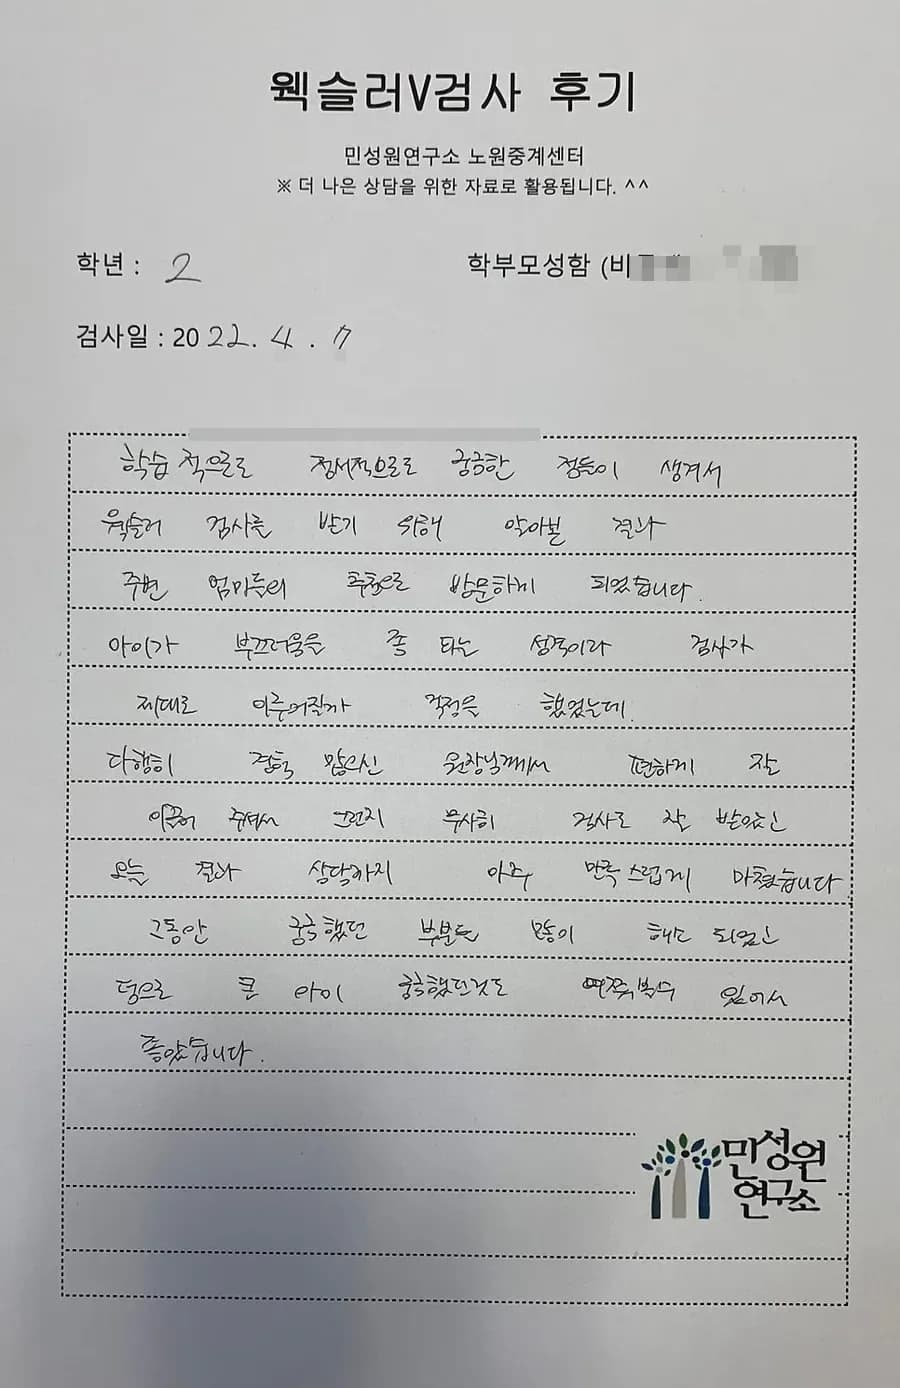 웩슬러V검사 후기
민성원연구소 노원중계센터
※ 더 나은 상담을 위한 자료로 활용됩니다. ^^
학년 : 2
학부모성함 (비
검사일 : 2022. 4. 7
학습 적으로도 정서적으로도 궁금한 점들이 생겨서
웩슬러 검사를 받기 위해 알아본 결과
주변 엄마들의 추천으로 방문하게 되었습니다.
아이가 부끄러움을 좀 타는 성격이라 검사가
제대로 이루어질까 걱정을 했었는데
다행히 경험 많으신 원장님께서 편하게 잘
이끌어 주셔서 그런지 무사히 검사도 잘 받았고
오늘 결과 상담까지 아주 만족스럽게 마쳤습니다
그동안 궁금했던 부분도 많이 해소 되었고
덤으로 큰 아이 궁금했던것도 여쭤볼수 있어서
좋았습니다.
민성원
연구소